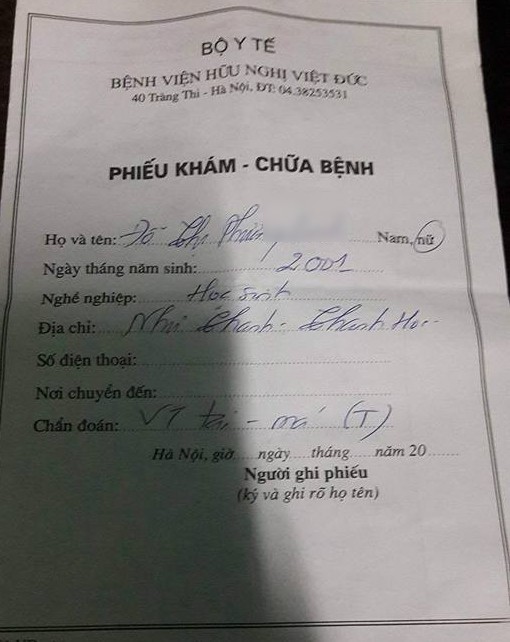 BỘ Y TẾ
BỆNH VIỆN HỮU NGHỊ VIỆT ĐỨC
40 Tràng Thi - Hà Nội, ĐT: 04.38253531
PHIẾU KHÁM - CHỮA BỆNH
Họ và tên: Đỗ Thị Nam, nữ
Ngày tháng năm sinh: 2001
Nghề nghiệp: Học sinh
Địa chỉ: Như Thanh - Thanh Hóa
Số điện thoại:
Nơi chuyển đến:
Chẩn đoán: VT tai - má (T)
Hà Nội, giờ ngày tháng năm 20
Người ghi phiếu
(ký và ghi rõ họ tên)